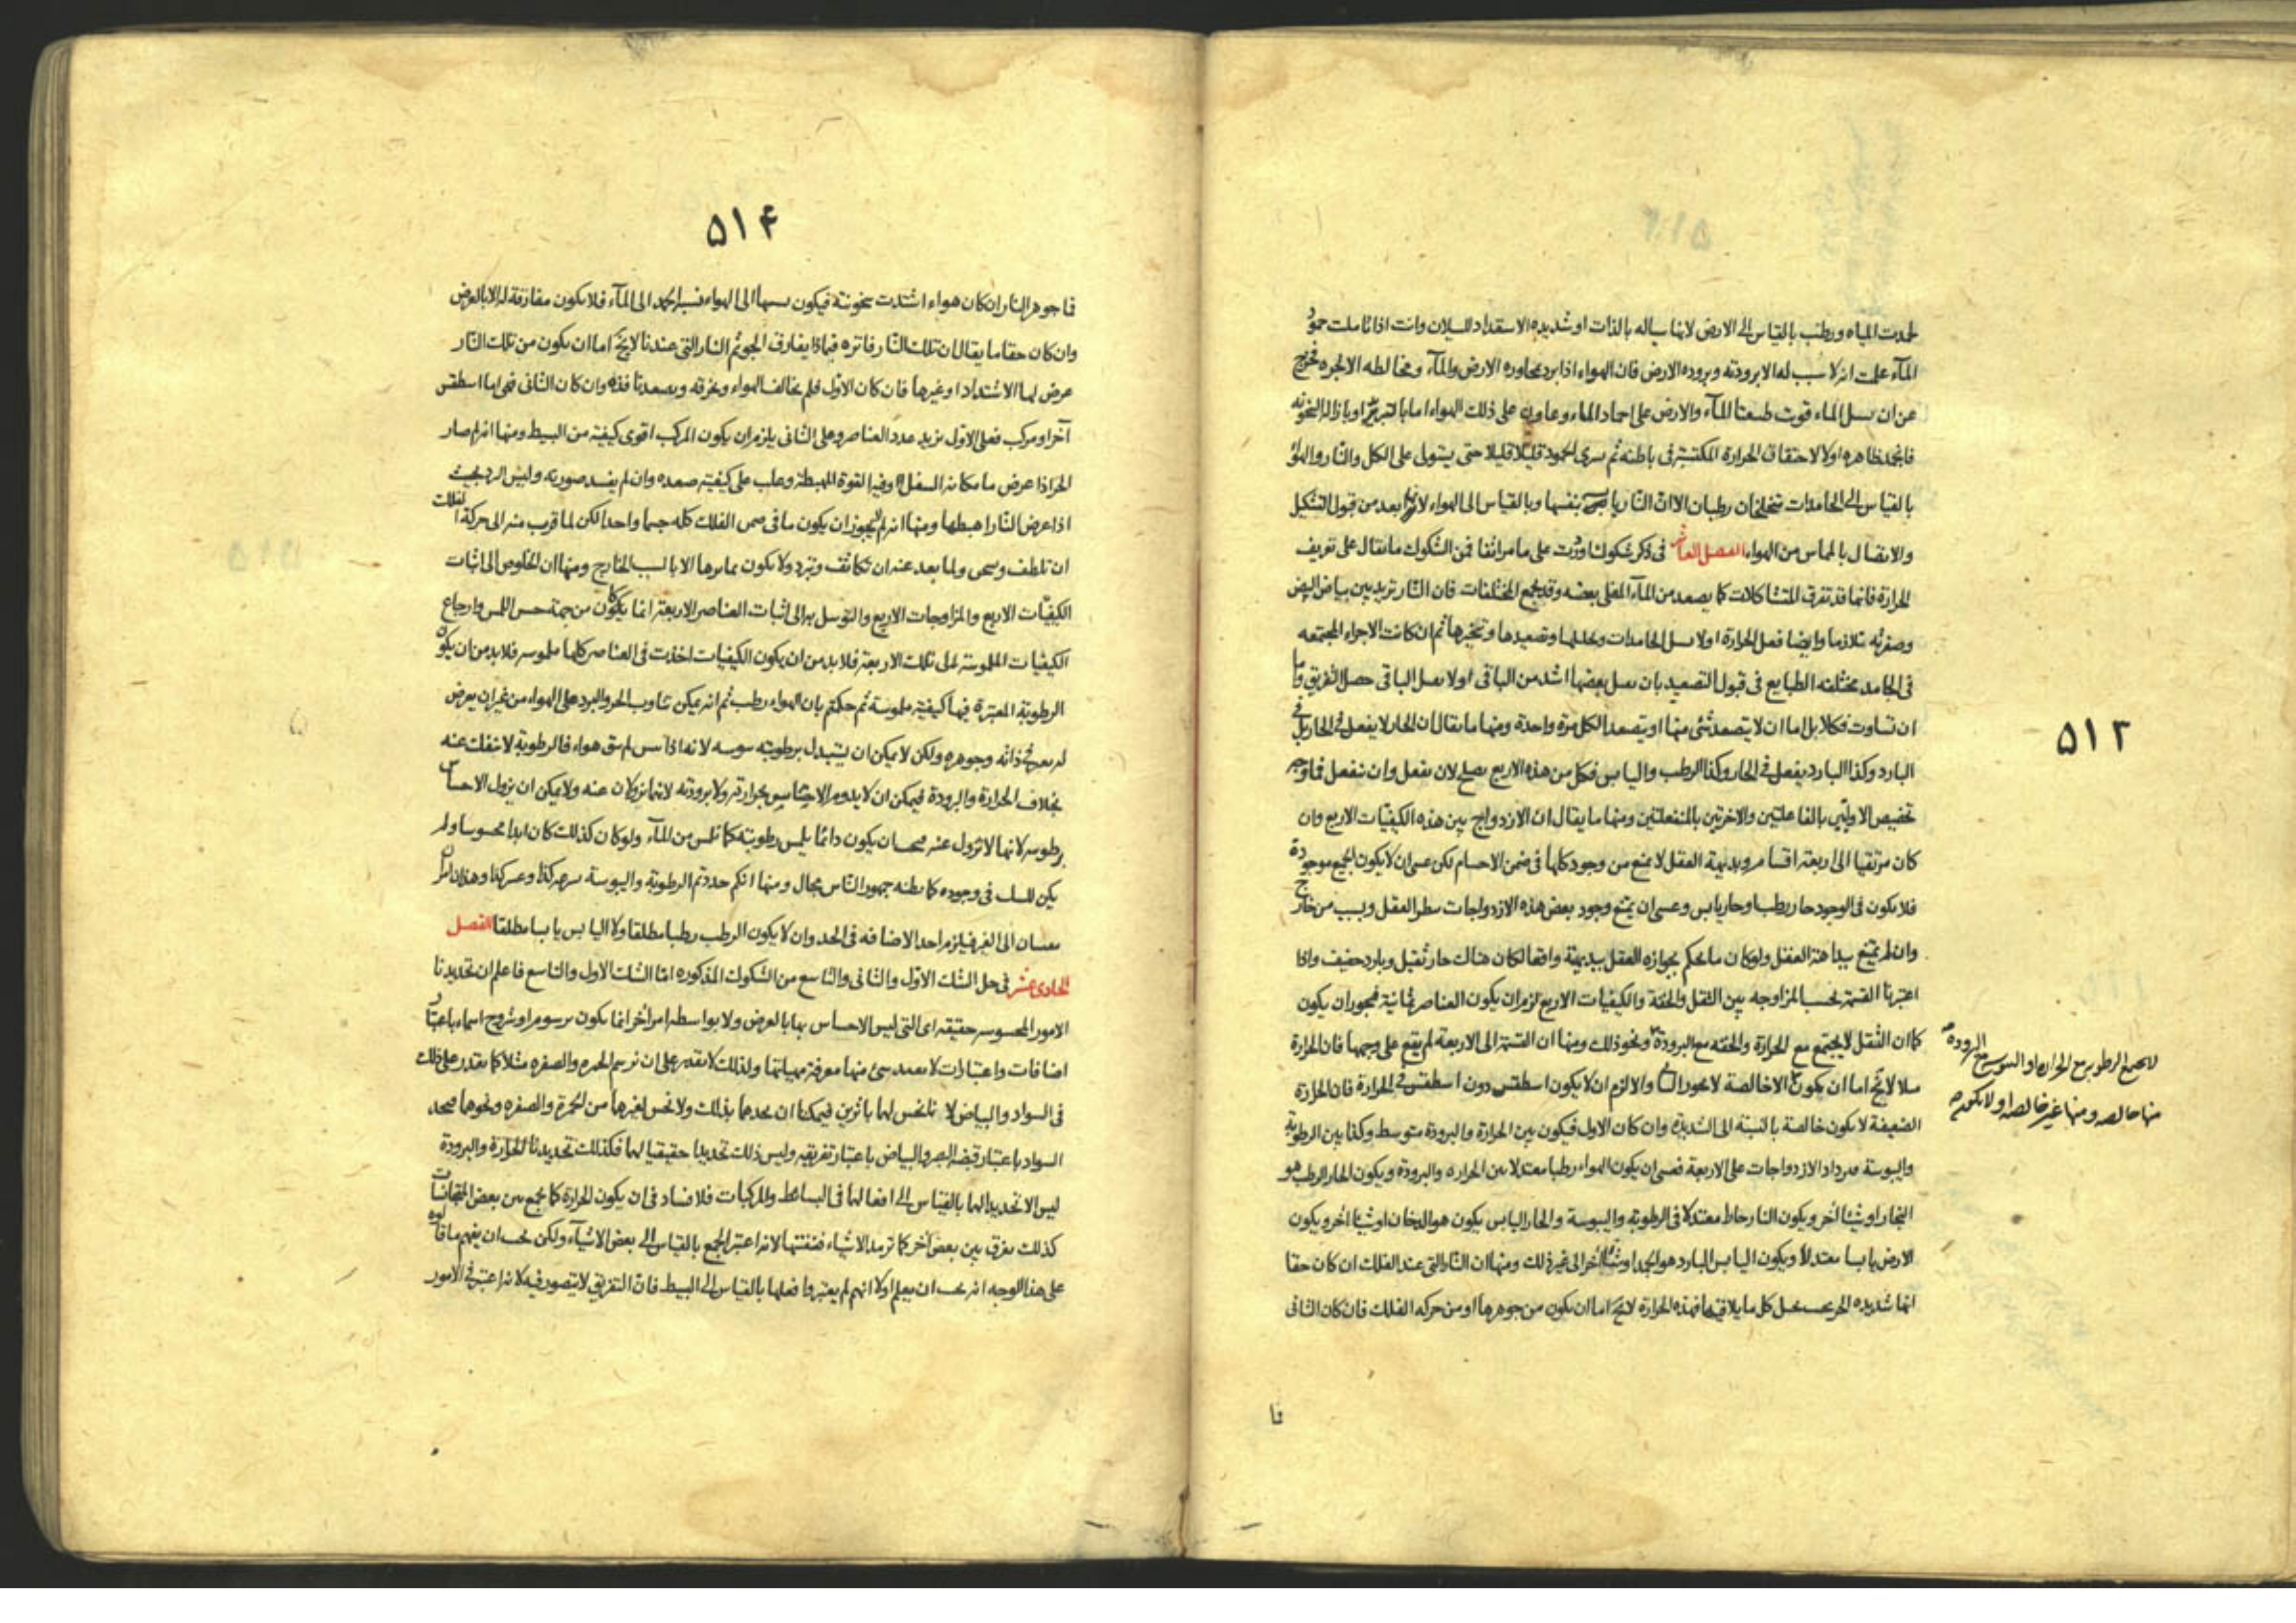 ۵۱۳
لجمدت المياه ورطب بالقياس الى الارض لانها سياله بالذات او شديده الاستعداد للسيلان وانت اذا تاملت جمود
المآء علمت انه لا سبب له الا برودته وبروده الارض فان الهواء اذا برد بمجاوره الارض والمآء ومخالطه الابخره فخرج
عن ان يسيل الماء قويت طبيعتا المآء والارض على اجماد الماء وعاون على ذلك الهواء اما بالتبريد او بازاله السخونه
فانجمد ظاهره اولا لاحتقان الحرارة المكتسبة فى باطنه ثم سرى الجمود قليلا قليلا حتى يستولى على الكل والنار والهواء
بالقياس الى الجامدات متخلخلان رطبان الا ان النار يابسة بنفسها وبالقياس الى الهواء لانها بعد من قبول التشكيل
والاتصال بالمماس من الهواء الفصل العاشر فى ذكر شكوك اوردت على ما مر انفا فمن الشكوك ما يقال على تعريف
الحرارة فانها قد تفرق المتشاكلات كما يصعد من المآء المغلى بعضه وقد يجمع المختلفات فان النار تزيد بين بياض البيض
وصفرته تلازما وايضا فعل الحرارة اولا تسيل الجامدات وتحليلها وتصعيدها وتبخيرها ثم ان كانت الاجزاء المجتمعه
فى الجامد مختلفه الطبايع فى قبول التصعيد بان يقبل بعضها اشد من الباقى او لا يقبل الباقى حصل التفريق واما
ان تساوت فكلا بل اما ان لا يتصعد شئ منها او يتصعد الكل مرة واحدة ومنها ما يقال ان الحار لا يفعل فى الحار بل فى
البارد وكذا البارد يفعل فى الحار وكذا الرطب واليابس فكل من هذه الاربع يصلح لان يفعل وان ينفعل فما وجه
تخصيص الاوليين بالفاعلتين والاخرتين بالمنفعلتين ومنها ما يقال ان الازدواج بين هذه الكيفيات الاربع وان
كان مرتقيا الى اربعة اقسام وبديهة العقل لا تمنع من وجود كلها فى ضمن الاجسام لكن عسى ان لا يكون الجميع موجودة
فلا يكون فى الوجود حار رطب او حار يابس وعسى ان يمتنع وجود بعض هذه الازدواجات بنظر العقل وبسبب من خارج
وان لم يمتنع ببداهة العقل ولو كان ما يحكم بجوازه العقل ببديهته واقعا لكان هناك حار ثقيل وبارد خفيف واذا
اعتبرنا القسمة بحسب المزاوجه بين الثقل والخفة والكيفيات الاربع لزم ان يكون العناصر ثمانية فيجوز ان يكون
كما ان الثقل لا يجتمع مع الحرارة والخفه مع البرودة ونحو ذلك ومنها ان القسمة الى الاربعة لم يقع على وجهها فان الحرارة
لا يجتمع الرطوبة مع الحرارة او اليبوسه مع البروده
مثلا لا يخ اما ان يكون الا خالصة لا يجوز الخ والا لزم ان لا يكون اسطقس دون اسطقس فى الحرارة فان الحرارة
منها خالصه ومنها غير خالصه او لا يكون
الضعيفة لا يكون خالصة بالنسبة الى الشديدة وان كان الاول فيكون بين الحرارة والبرودة متوسط وكذا بين الرطوبة
واليبوسة فيزداد الازدواجات على الاربعة فعسى ان يكون الهواء رطبا معتدلا بين الحراره والبرودة ويكون الحار الرطب هو
البخار او شيئا آخر ويكون النار حاطا معتدلا فى الرطوبة واليبوسة والحار اليابس يكون هو الدخان او شيئا آخر ويكون
الارض يابسا معتدلا ويكون اليابس البارد هو الجمد او شيئا آخر الى غير ذلك ومنها ان النار التى عند الفلك ان كان حقا
انها شديده الحر بحيث يحيل كل ما يلاقيها فهذه الحرارة لا يخ اما ان يكون من جوهرها او من حركه الفلك فان كان الثانى
فا
۵۱۴
فا جوهر النار ان كان هواء اشتدت سخونته فيكون نسبتها الى الهواء نسبة الجمد الى المآء فلا يكون مفارقة له الا بالعرض
وان كان حقا ما يقال ان تلك النار فاتره فبماذا يفارق الجو ثم النار التى عندنا لا يخ اما ان يكون من تلك النار
عرض لها الاشتداد او غيرها فان كان الاول فلم يخالف الهواء ويحرقه ويصعد نافذة وان كان الثانى فهى اما اسطقس
آخر او مركب فعلى الاول يزيد عدد العناصر وعلى الثانى يلزم ان يكون المركب اقوى كيفية من البسيط ومنها انه لم صار
الحر اذا عرض ما مكانه السفل وفيه القوة المهبطه وغلب على كيفيته صعده وان لم يفسد صورته وليس البرد بحيث
اذا عرض النار اهبطها ومنها انه لم لا يجوز ان يكون ما فى ضمن الفلك كله جسما واحدا لكن لما قرب منه الى حركة الفلك
ان تلطف وسخن ولما بعد عنه ان تكاثف وتبرد ولا يكون تمايزها الا بالسبب الخارج ومنها ان الخلوص الى اثبات
الكيفيات الاربع والمزاوجات الاربع والتوسل به الى اثبات العناصر الاربعة انما يكون من جهة حس اللمس وارجاع
الكيفيات الملموسة الى تلك الاربعة فلا بد من ان يكون الكيفيات اخذت فى العناصر كلها ملموسه فلا بد من ان يكون
الرطوبة المعتبرة فيها كيفية ملموسة ثم حكمتم بان الهواء رطب ثم انه يمكن تناوب الحر والبرد على الهواء من غير ان يعرض
له تغير فى ذاته وجوهره ولكن لا يمكن ان يتبدل برطوبته يبوسه لانه اذا يبس لم يبق هواء فالرطوبة لا تنفك عنه
بخلاف الحرارة والبرودة فيمكن ان لا يدوم الاحساس بحرارته ولا برودته لانهما يزولان عنه ولا يمكن ان يزول الاحساس
برطوبته لانها لا تزول عنه فيجب ان يكون دائما يلمس رطوبته كما تلمس من المآء ولو كان كذلك كان ابدا محسوسا ولم
يكن للشك فى وجوده كما يظنه جمهور الناس مجال ومنها انكم حددتم الرطوبة واليبوسة بسهولة كذا وعسر كذا وهذان امران
يقاسان الى الغير فيلزم اخذ الاضافه فى الحد وان لا يكون الرطب رطبا مطلقا ولا اليابس يابسا مطلقا الفصل
الحادى عشر فى حل الشك الاول والثانى والتاسع من الشكوك المذكوره اما الشك الاول والتاسع فاعلم ان تحديدنا
الامور المحسوسه حقيقه اى التى ليس الاحساس بها بالعرض ولا بواسطه امر آخر انما يكون برسوم او شروح اسماء باعتبار
اضافات واعتبارات لا يفيد شئ منها معرفة مهياتها ولذلك لا نقدر على ان نرسم الحمره والصفره مثلا كما نقدر على ذلك
فى السواد والبياض لانا نحس لهما باثرين فيمكننا ان نحدهما بذلك ولا نحس لغيرهما من الحمرة والصفره ونحوهما فنحد
السواد باعتبار قبضه البصر والبياض باعتبار تفريقه وليس ذلك تحديدا حقيقيا لهما فكذلك تحديدنا الحرارة والبرودة
ليس الا تحديدا لهما بالقياس الى افعالهما فى البسائط والمركبات فلا فساد فى ان يكون الحرارة كما يجمع بين بعض المتجانسات
كذلك يفرق بين بعض آخر كما ترمد الاشياء فتفتتها لانه اعتبر الجمع بالقياس الى بعض الاشيآء ولكن يجب ان يفهم ما قالوه
على هذا الوجه انه يجب ان يعلم اولا انهم لم يعتبروا فعلها بالقياس الى البسيط فان التفريق لا يتصور فيه لانه اعتبر فى الامور